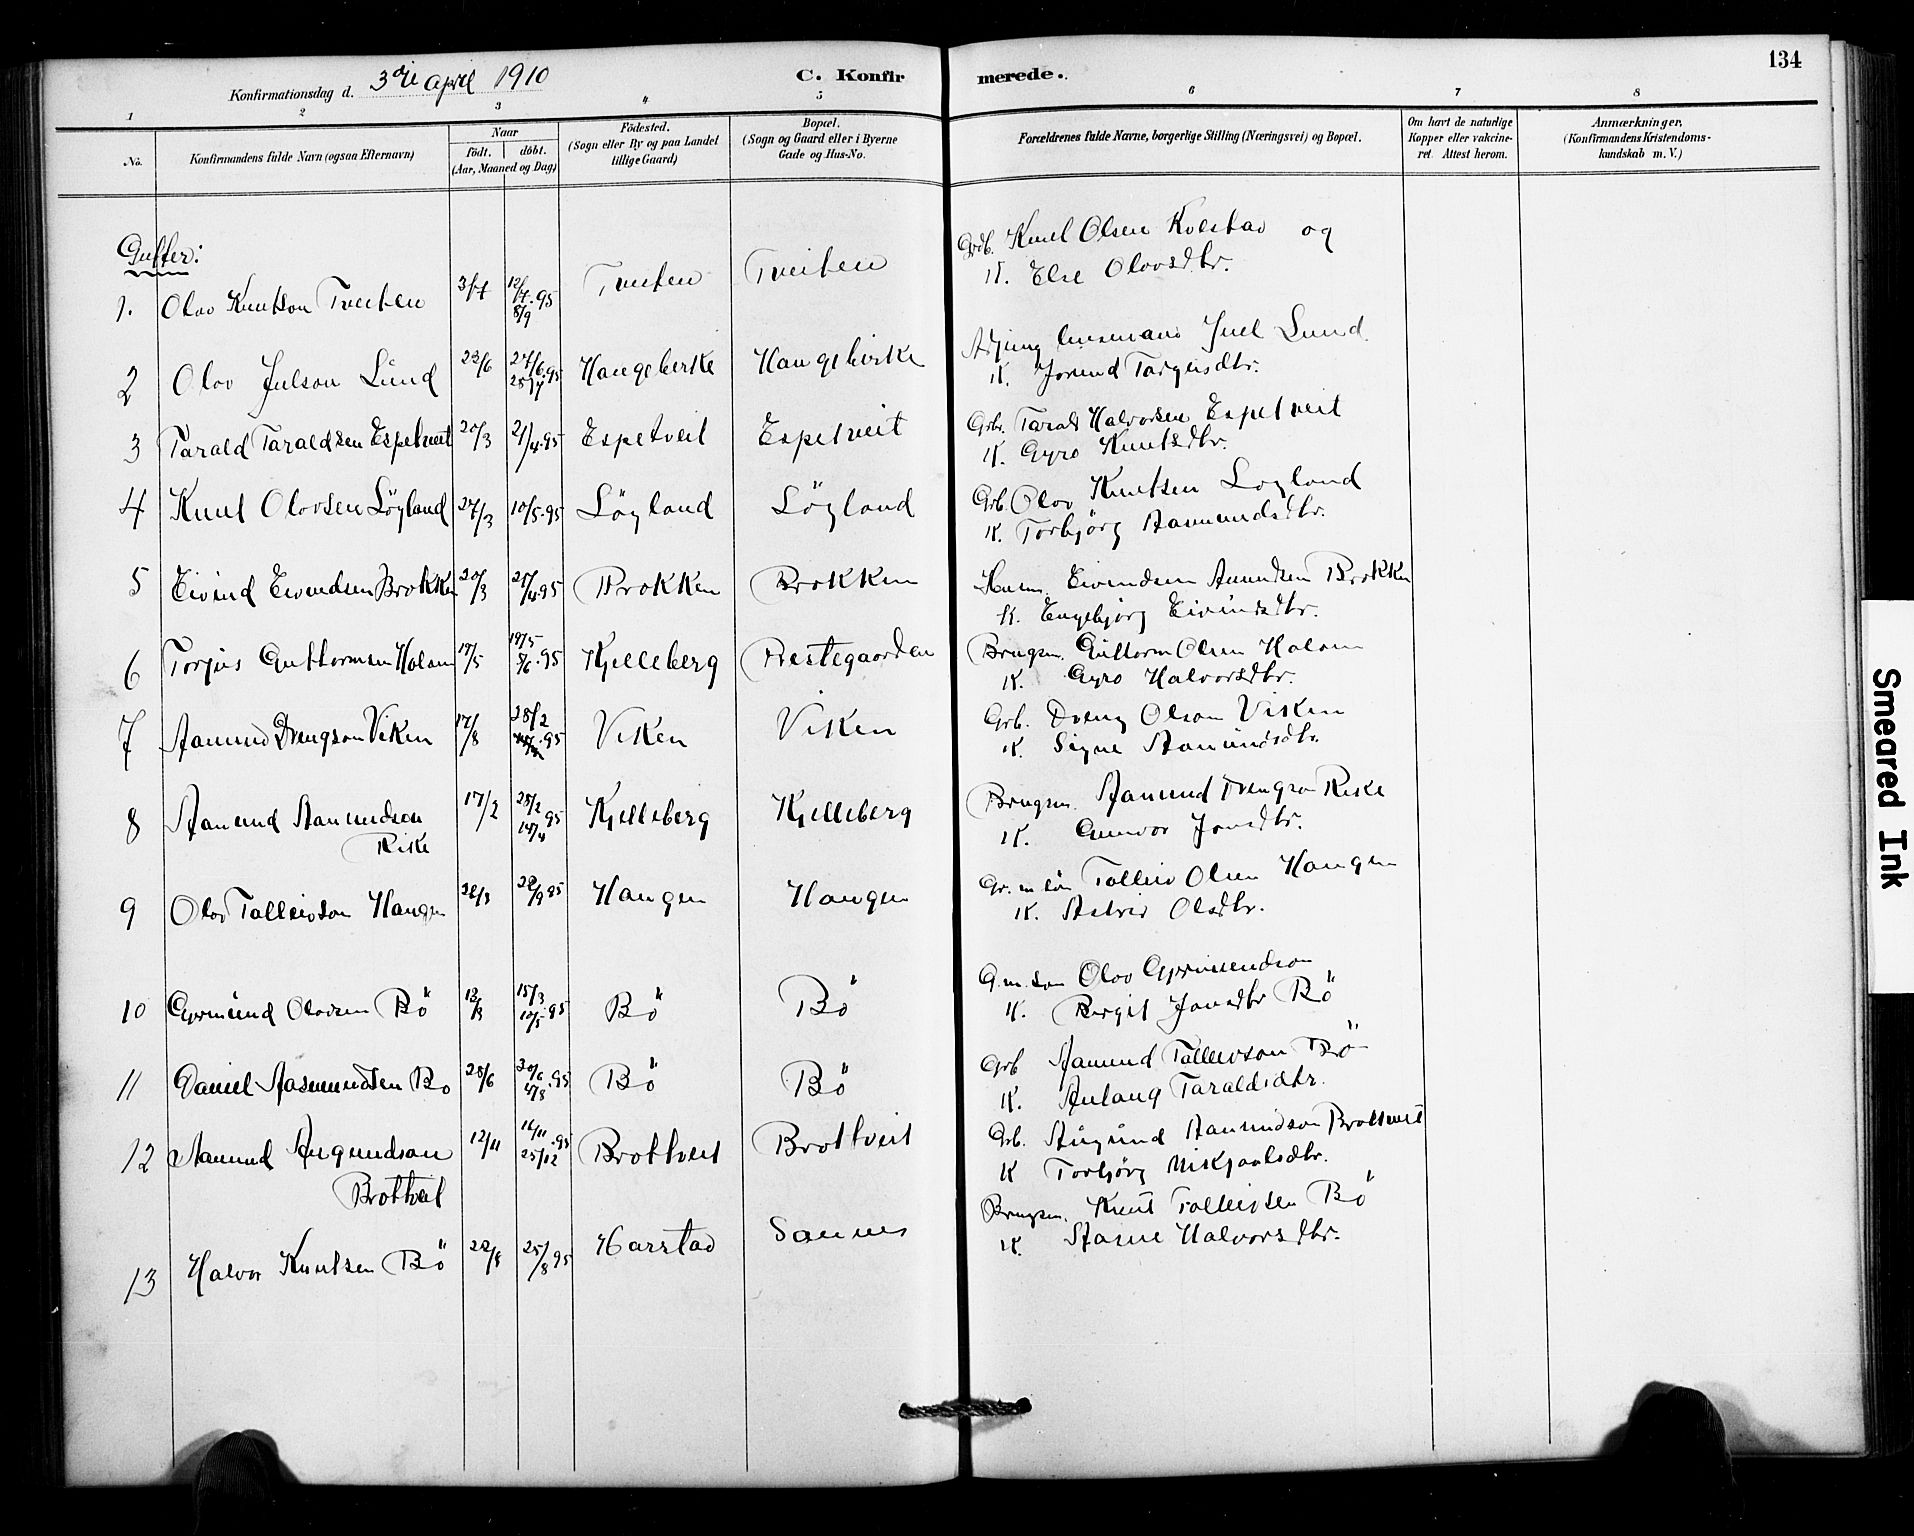 134
Konfirmationsdag d. 3die april 1910
C. Konfirmerede.
1 2 3 4 5 6 7 8
No.
Konfirmandens fulde Navn (ogsaa Efternavn)
Naar
födt. döbt.
(Aar, Maaned og Dag)
Födested.
(Sogn eller By og paa Landet
tillige Gaard)
Bopæl.
(Sogn og Gaard eller i Byerne
Gade og Hus-No.
Forældrenes fulde Navne, borgerlige Stilling (Næringsvei) og Bopæl.
Om havt de naturlige
Kopper eller vakcine-
ret. Attest herom.
Anmærkninger.
(Konfirmandens Kristendoms-
kundskab m. V.)
Gutter:
1. Olav Knutson Tveiten 3/7 12/7.95 8/9 Tveiten Tveiten Grdb. Knut Olsen Kvestad og
K. Else Olovsdtr.
2 Olav Julson Lund 23/6 27/6.95 Haugebirke Haugebirke lensmand Juel Lund
K. Jorund Targeisdtr.
3 Tarald Taraldsen Espetveit 20/3 21/4.95 Espetveit Espetveit Grb. Tarald Halvorsen Espetveit
K. Gyro Knutsdtr.
4 Knut Olovsen Löyland 27/3 10/5.95 Löyland Löyland Grb. Olov Knutsen Löyland
K. Torbjörg Aamundsdtr.
5 Eivind Eivendsen Brokken 20/3 21/4.95 Brokken Brokken Husm. Eivendsen Amundsen Brokken
K. Engebjörg Eivindsdtr.
6 Torjus Guttormsen Holam 17/5 19/5 .95 Kjelleberg Prestegaarden Brugsm. Guttorm Olsen Holam
K. Gyro Halvorsdtr.
7 Aamund Drengson Viken 17/8 28/2 .95 Viken Viken Grb. Dreng Olson Viken
K. Signe Aamundsdtr.
8 Aamund Aamundson 17/2 28/2 95 14/4 Kjelleberg Kjelleberg Brugsm. Aamund Drengson Rike
Rike K. Gunvor Jonsdtr.
9 Olov Tolleivson Haugen 95 Haugen Haugen Gr. m. sön Tolleiv Olsen Haugen
K. Astrid Olsdtr.
10 Gyrmund Olovsen Bö 12/3 15/3 .95 12/5 Bö Bö G.m. son Olov Gyrmundson
K. Birgit Jonsdtr Bö
11 Daniel Aasmundsen Bö 28/6 30/6.95 4/8 Bö Bö Grb Aamund Tolleivson Bö
K. Anlaug Taraldsdtr.
12 Aamund Augundson 12/11 16/11.95 25/12 Brottveit Brottveit Grb. Augund Aamundson Brottveit
Brotteit K Torbjörg Mikjaalsdtr.
13 Halvor Knutsen Bö 22/8 25/8 95 Harstad Sannes Brugsm. Knut Tolleivsen Bö
K Aasne Halvorsdtr.
Smeared Ink